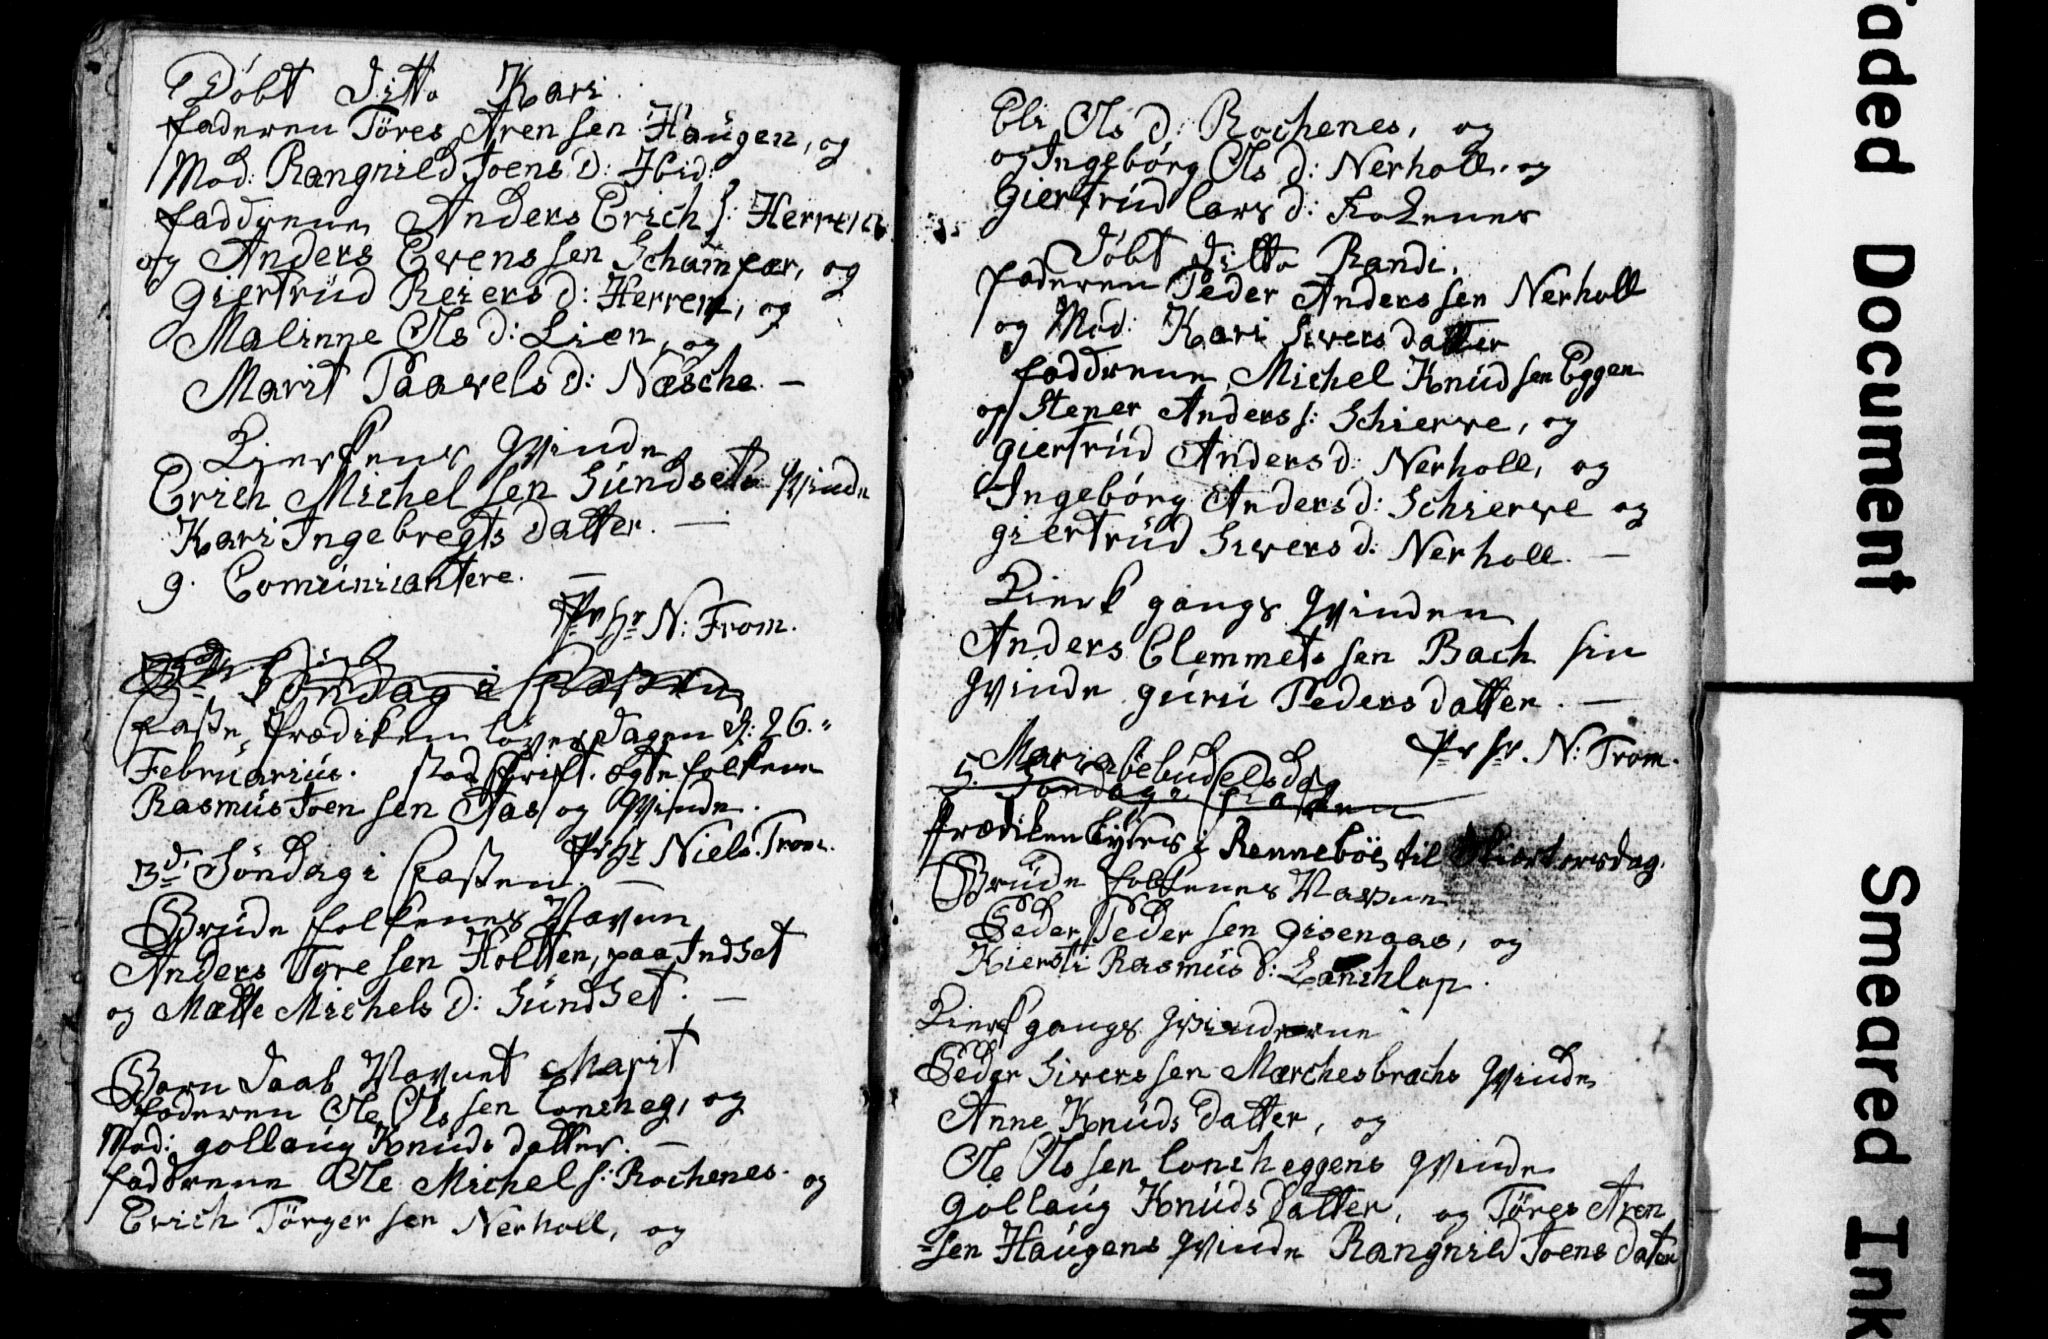 Döbt Ditto Kari.
faderen Töres Arensen Haugen, og
Mod: Rangnild Joens d: Ibid:
faddrene Anders Erich s: Herrem
og Anders Evenssen Schamfær, og
Giertrud Reiers d: Herrem, og
Malinne Ols d: Lien, og
Marit Paavels d: Næscha. —
Kierkens Qvinde
Erich Michel sen Sundsets Qvinde
Kari Ingebregts datter. —
9. Comunicantere. —
Pr Hr N: From.
Söndag i Fasten
Faste Prædiken löverdagen d: 26.
Februarius. stod skrift. ægte folkene
Rasmus Joen sen Aas og Qvinde.
Pr Hr Niels From.
3de Söndag i Fasten. —
Brude folkenes Navnn
Anders Tore sen Holtten, paa Indset
og Mætte Michels d: Sundset. —
Barn daab Navnet Marit
faderen Ole Ols sen Loncheg, og
Mod: gollaug Knuds datter. —
faddrene Ole Michel s: Rochenes. og
Erich Törger sen Nerholl, og
Eli Ols d: Rochenes, og
og Ingebörg Ols d: Nerholl. og
Giertrud Lars d:
Döbt Ditto Randi.
faderen Peder Anders sen Nerholl
og Mod: Kari Sivers datter
faddrene Michel Knud sen Eggen
og Stener Anders s: Schierve, og
giertrud Anders d: Nerholl, og
Ingebörg Anders d: Schierve og
giertrud Sivers d: Nerholl. —
Kierk gangs Qvinden
Anders Clemmets sen Bach sin
Qvinde guru Peders datter. —
Pr Hr. N: From.
Mariæ bebudelsdag
5. Söndag i Fasten
Prædiken lyses i Rennebös til Skiertorsdag.
Brude folkenes Navne
Peder Peder sen Gisenaas, og
Kiersti Rasmus d:
Kierk gangs Qvinderne
Peder Sivers sen Marchesbrachs Qvinde
Anne Knuds datter, og
Ole Ols sen Loncheggens Qvinde
gollaug Knuds datter, og Töres Aren
-sen Haugens Qvinde Rangnild Joens dater
Faded Document
Smeared Ink